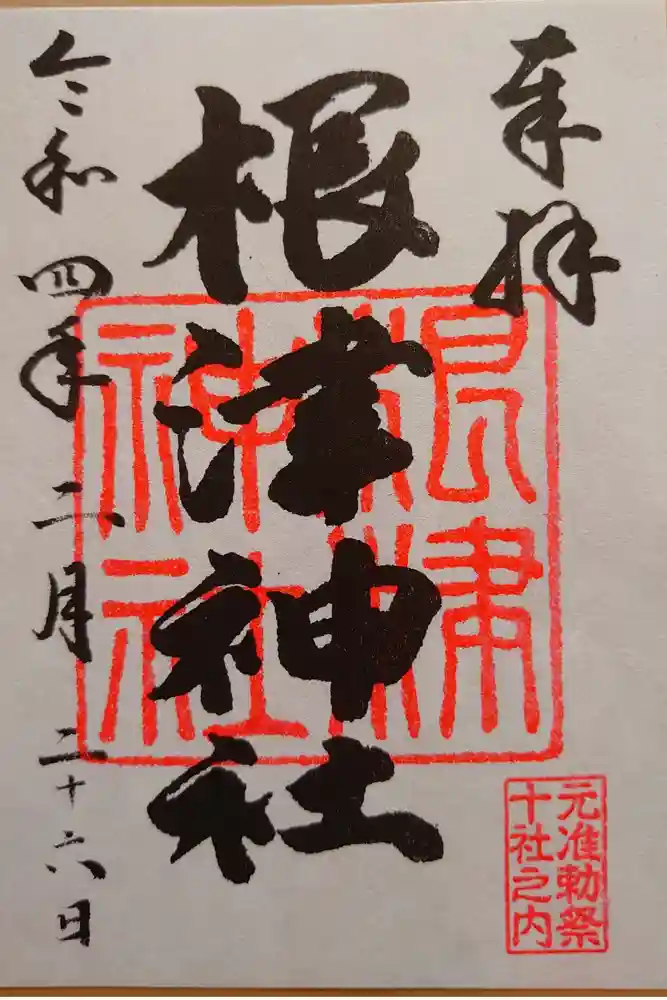 奉拝
根津神社
根津神社
元准勅祭
十社之内
令和四年二月二十六日